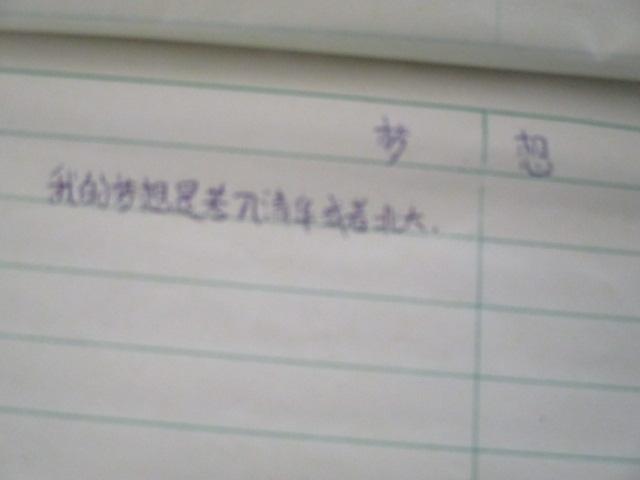 梦 想
我的梦想是考入清华或者北大.